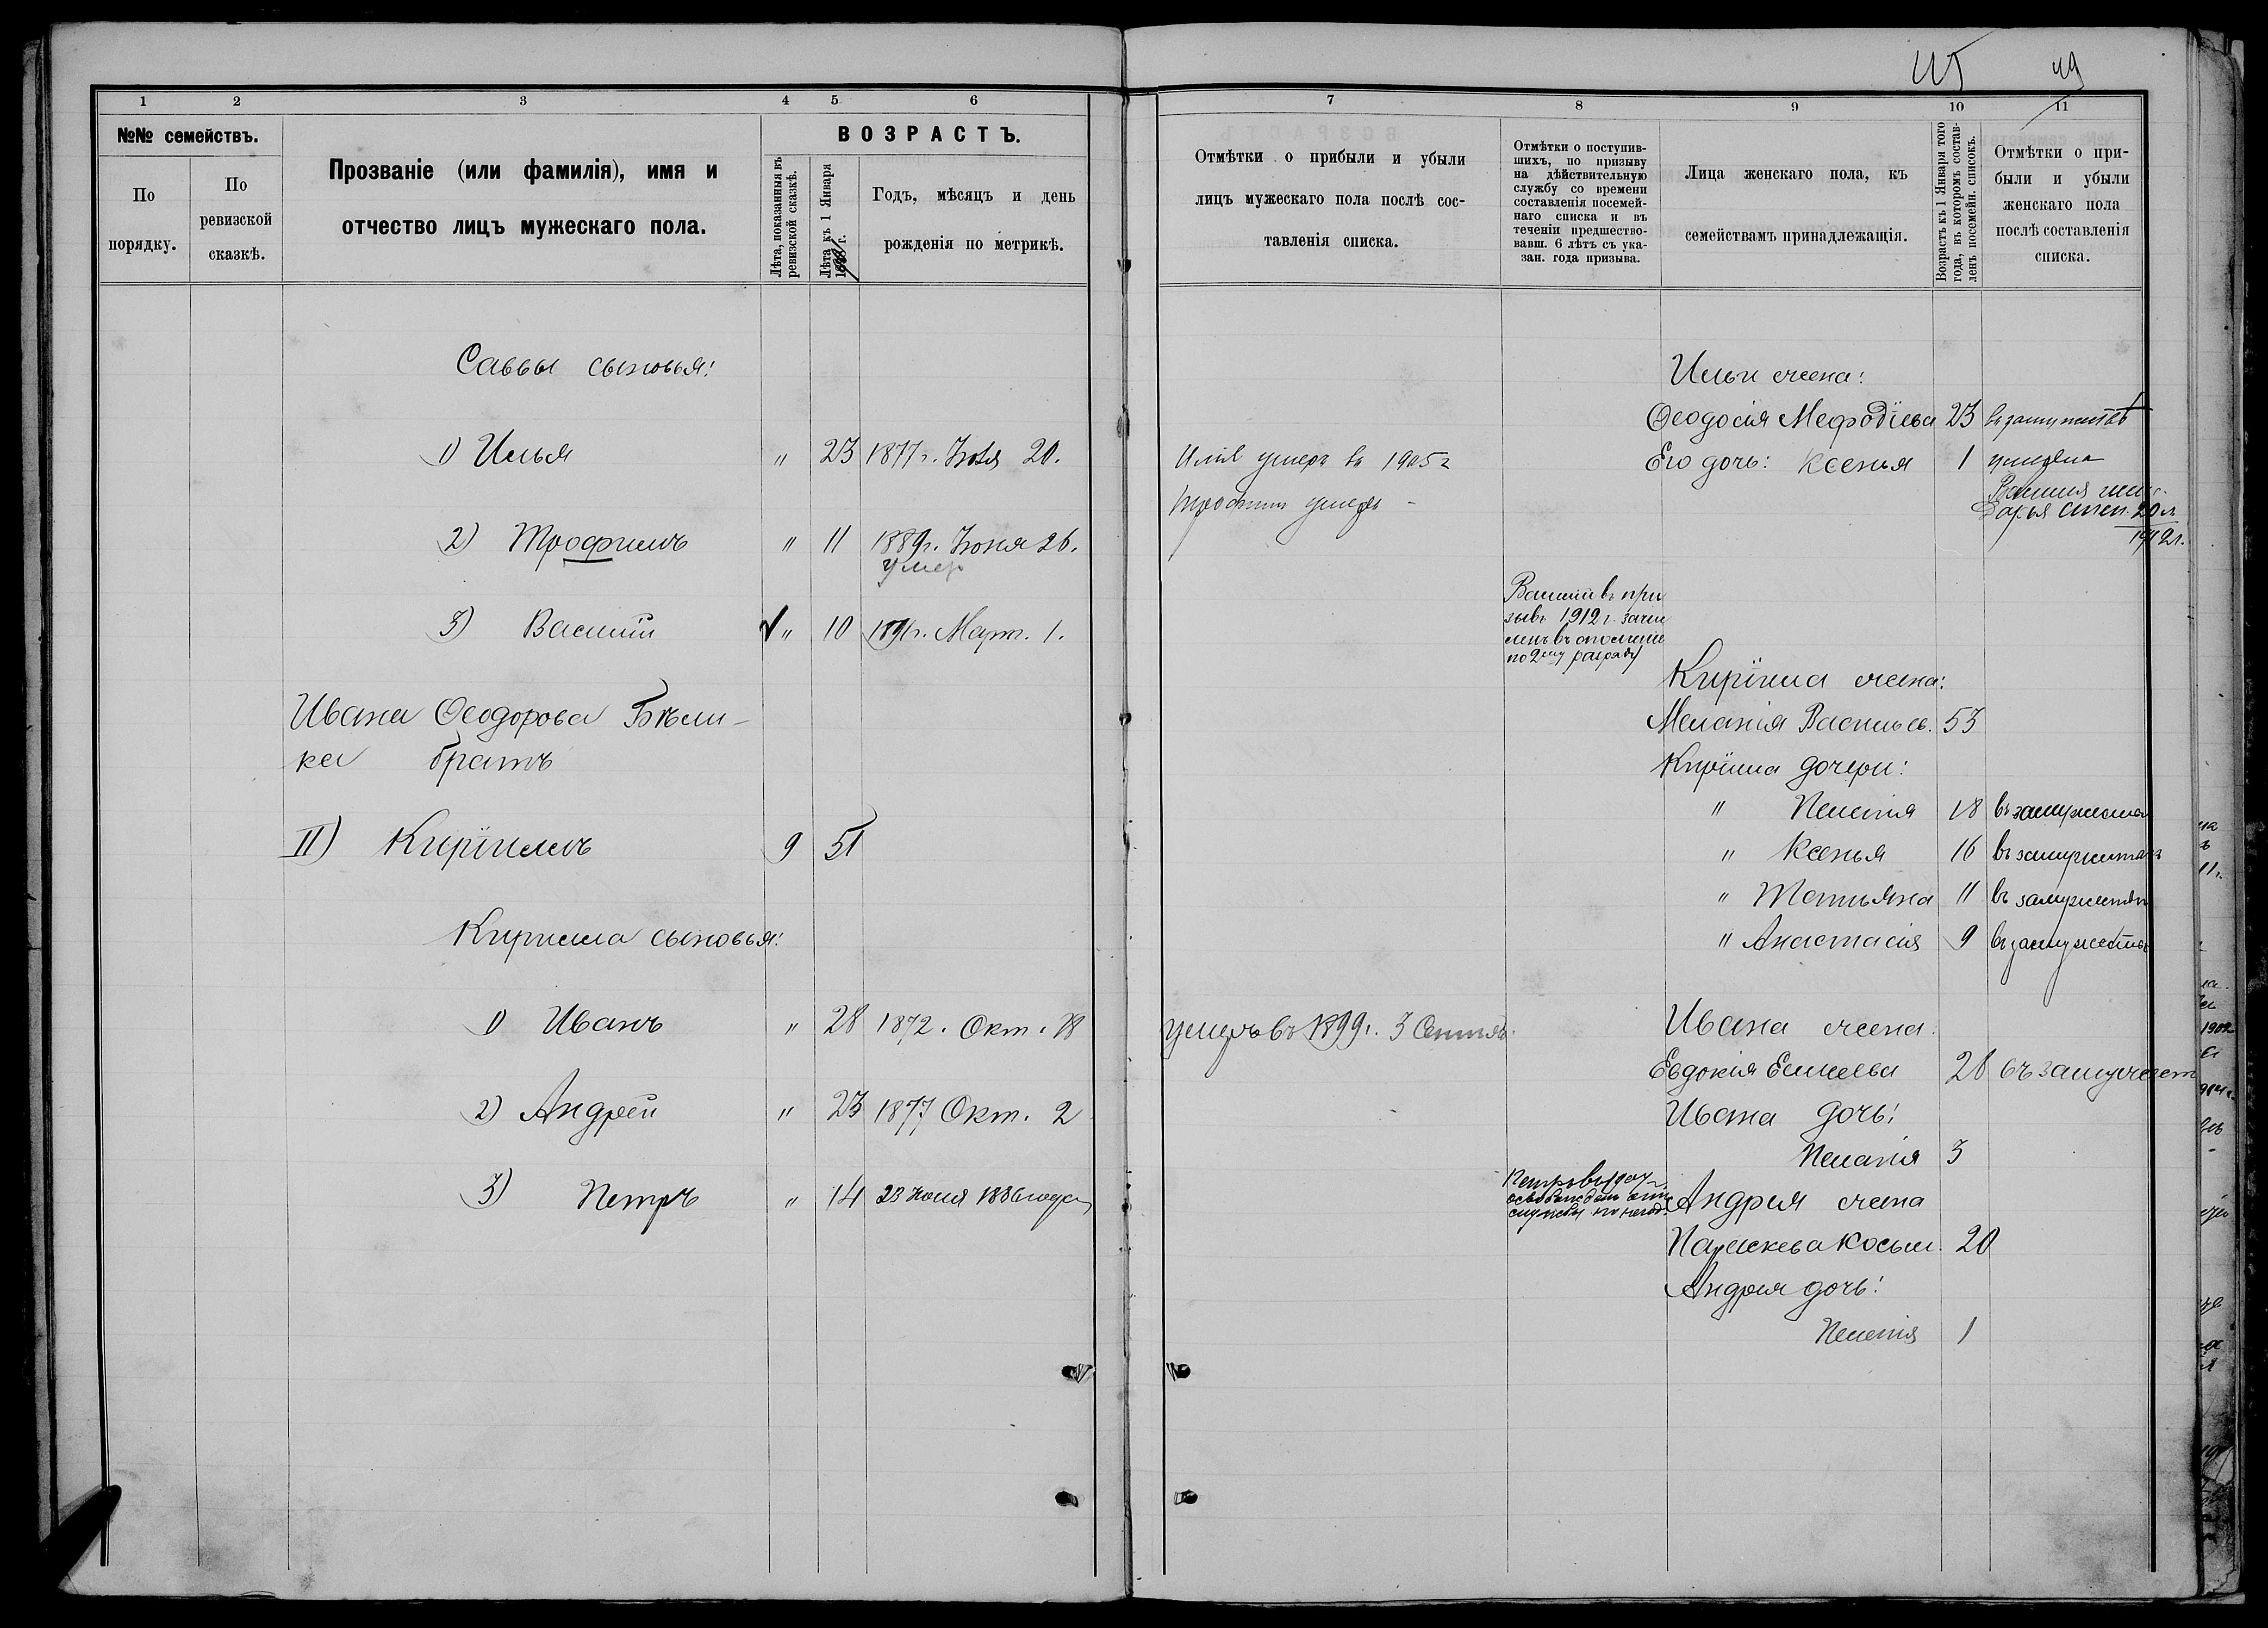 1
2
3
4
5
6
№№ семействъ.
По порядку.
По ревизской сказкѣ.
Прозваніе (или фамилія), имя и
отчество лицъ мужескаго пола.
ВОЗРАСТЪ.
Лѣта, показанныя въ ревизской сказкѣ.
Лѣта къ 1 Января
г.
Годъ, мѣсяцъ и день
рожденія по метрикѣ.
Саввы сыновья:
1) Илья " 23 1877 г. Іюля 20.
2) Трофимъ " 11 1889 г. Іюня 26.
умер
3) Василій " 10 Март. 1.
Ивана Ѳеодорова Бѣли-
ка братъ
II) Кириллъ 9 51
Кирилла сыновья:
1) Иванъ " 28 1872. Окт. 18
2) Андрей " 23 1877 Окт. 2
3) Петръ " 14 23 Іюня 1886 года
49
7
8
9
10
11
Отмѣтки о прибыли и убыли
лицъ мужескаго пола послѣ сос-
тавленія списка.
Отмѣтки о поступив-
шихъ, по призыву
на дѣйствительную
службу со времени
составленія посемей-
наго списка и въ
теченіи предшество-
вавш. 6 лѣтъ съ ука-
зан. года призыва.
Лица женскаго пола, къ
семействамъ принадлежащія.
Возрастъ къ 1 Января того
года, въ которомъ состав-
ленъ посемейн. списокъ.
Отмѣтки о при-
были и убыли
женскаго пола
послѣ составленія
списка.
Ильи жена:
Ѳеодосія Меѳодіева 23 въ замужствѣ
Илія умеръ въ 1905 г
Его дочь: Ксенья 1 умерла
Трофим умеръ -
Василія жен.
Дарья Степ. 20 л
1912 г.
Василій въ при
зывъ 1912 г. зачи
сленъ въ ополченіе
по 2му разряду
Кирилла жена:
Меланія Васильев. 53
Кирилла дочери:
" Пелагія 18 въ замужества
" Ксенья 16 въ замужествах
" Татьяна 11 въ замужествѣ
" Анастасія 9 въ замужествѣ
умеръ въ 1899 г. 3 Сентяб.
Ивана жена:
Евдокія Елисеева 28 въ замужест
Ивана дочь:
Пелагія 3
Петръ въ 1907 г.
освобожденъ отъ
службы по негод.
Андрея жена
Параскева Косьм. 20
Андрея дочь:
Пелагія 1